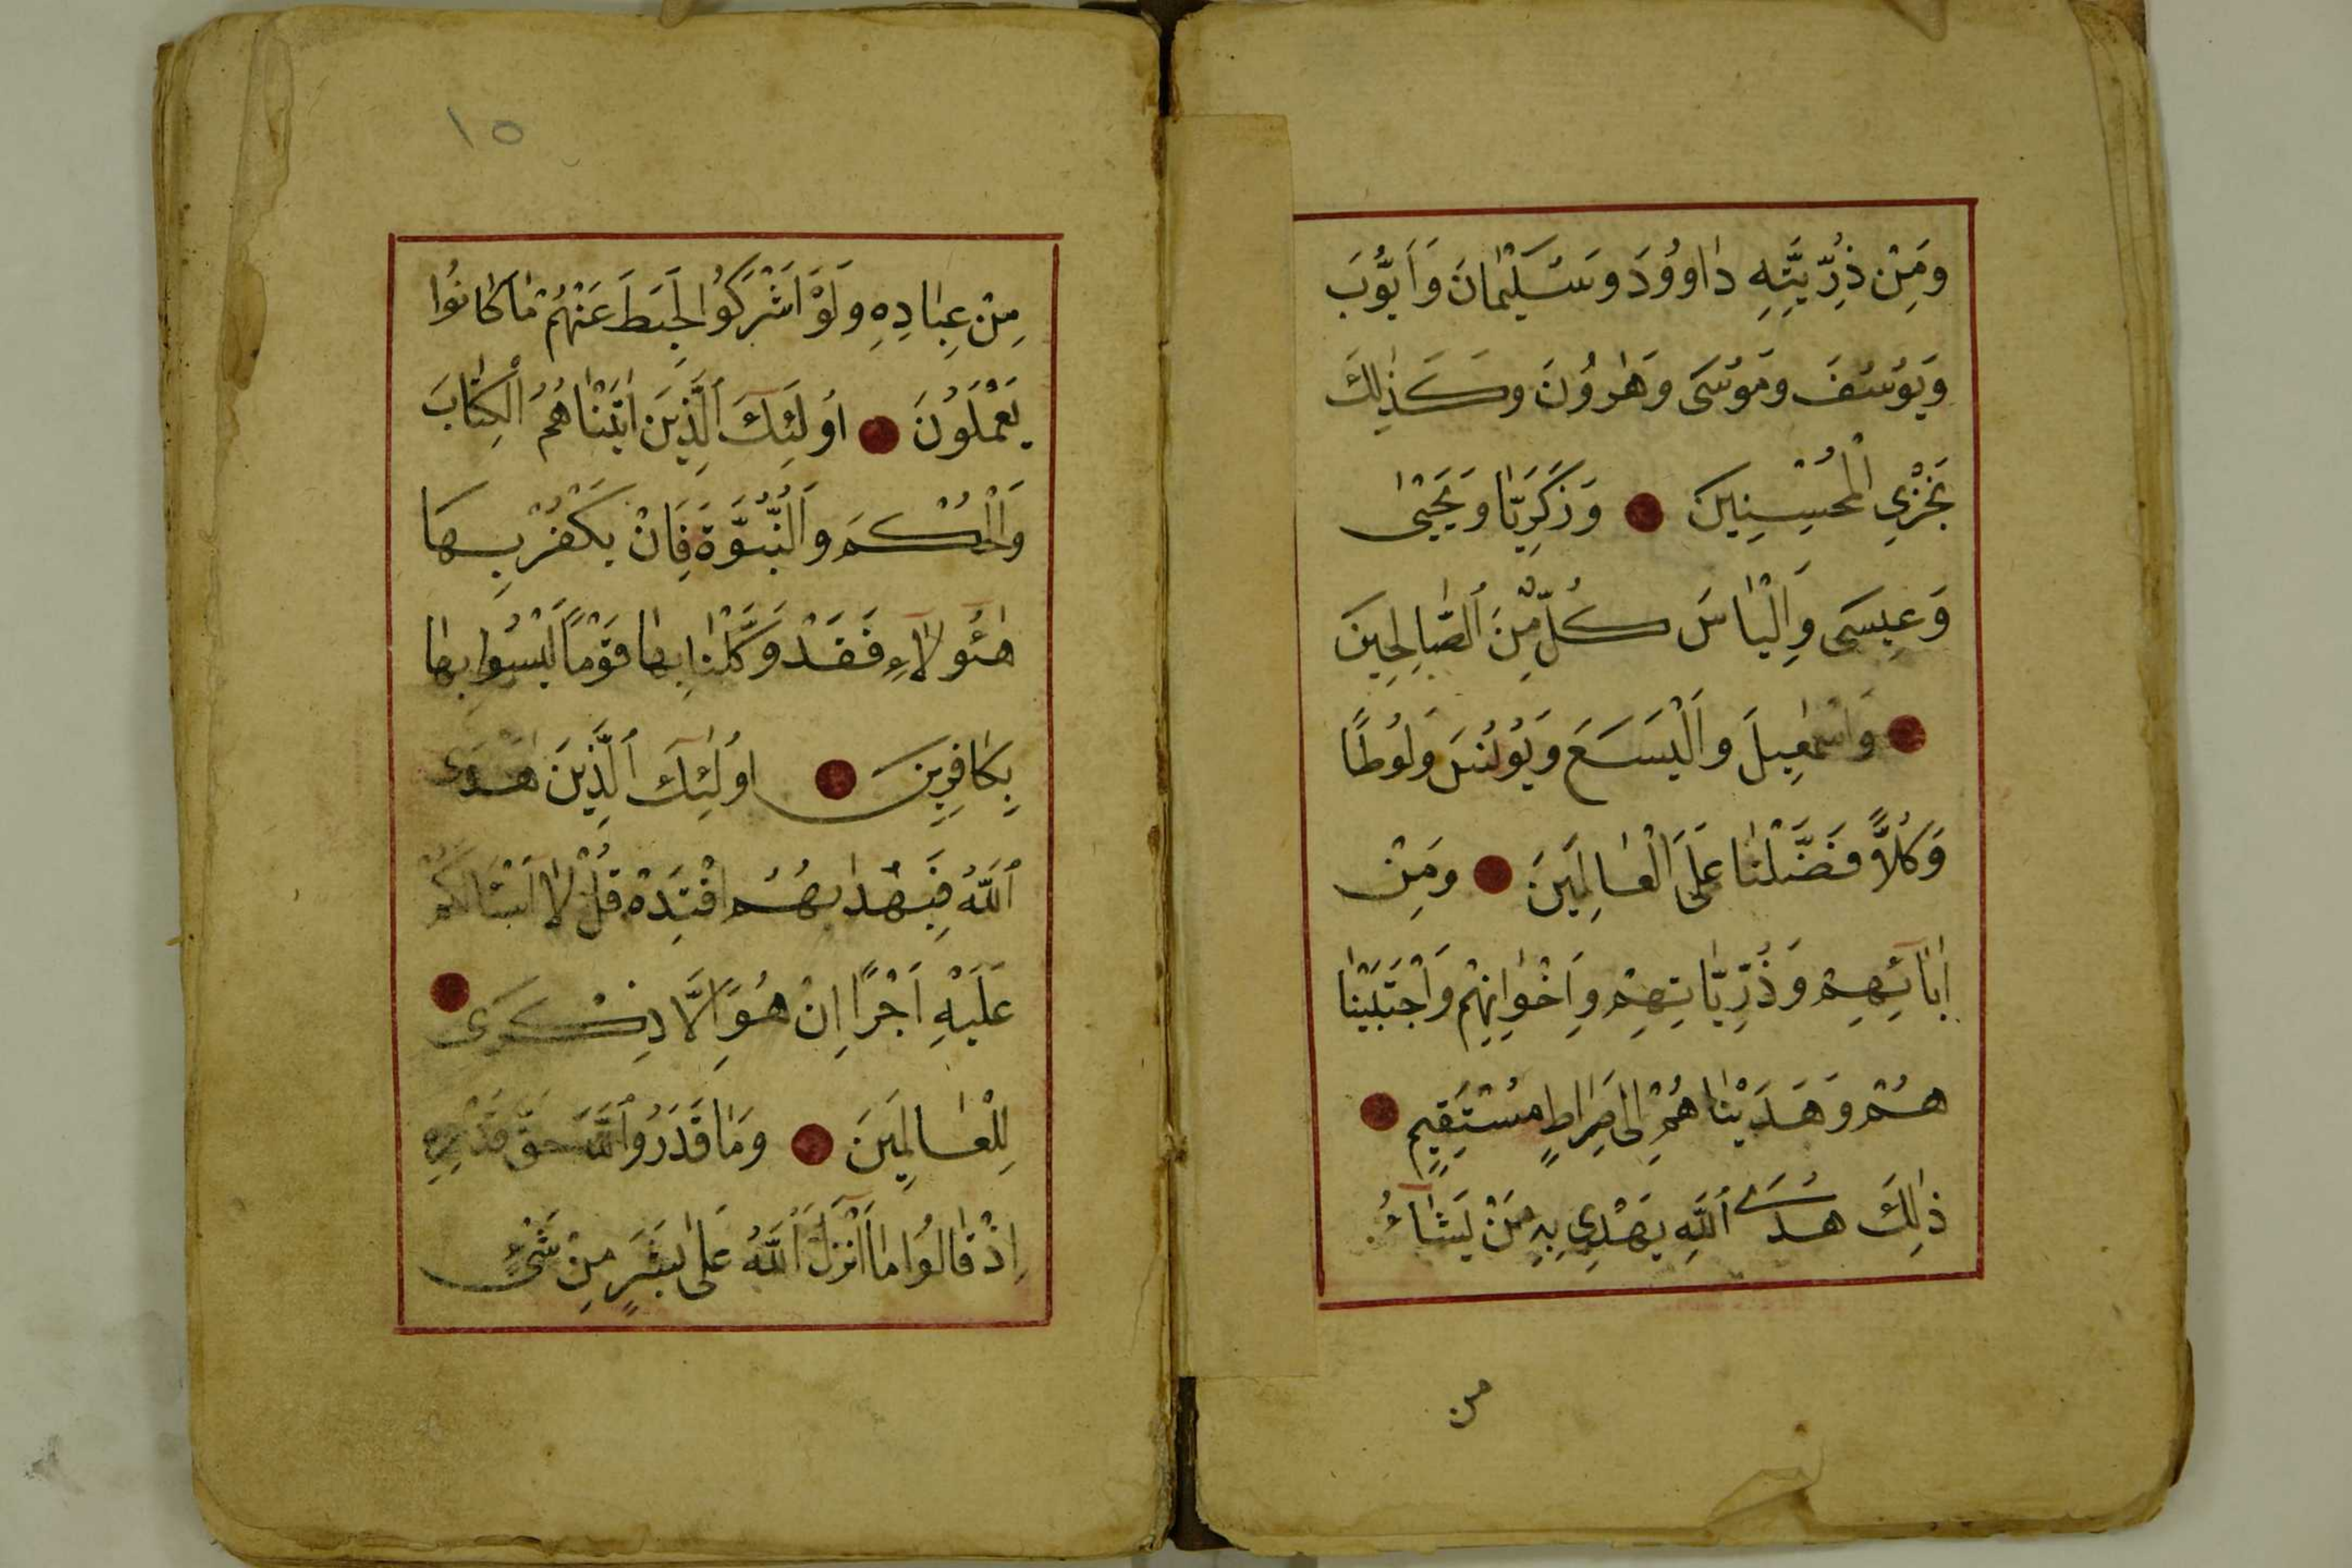 وَمِنْ ذُرِّيَّتِهِ دٰاوُودَ وَسُلَيْمٰانَ وَاَيُّوبَ
وَيُوسُفَ وَمُوسَى وَهٰرُونَ وَكَذٰلِكَ
نَجْزِي الْمُحْسِنِينَ وَزَكَرِيّٰا وَيَحْيٰى
وَعِيسَى وَاِلْيٰاسَ كُلٌّ مِنَ ٱلصّٰالِحِينَ
وَاسْمٰعِيلَ وَالْيَسَعَ وَيُونُسَ وَلُوطًا
وَكُلاًّ فَضَّلْنٰا عَلَى الْعٰالَمِينَ وَمِنْ
اٰبٰآئِهِمْ وَذُرِّيّٰاتِهِمْ وَاِخْوٰانِهِمْ وَاجْتَبَيْنٰا
هُمْ وَهَدَيْنٰاهُمْ اِلٰى صِرٰاطٍ مُسْتَقِيمٍ
ذٰلِكَ هُدَى ٱللّٰهِ يَهْدِي بِهِ مَنْ يَشٰآءُ
من
١٥
مِنْ عِبٰادِهِ وَلَوْ اَشْرَكُوا لَحَبِطَ عَنْهُمْ مٰا كٰانُوا
يَعْمَلُونَ اُولَئِكَ ٱلَّذِينَ اٰتَيْنٰاهُمُ الْكِتٰابَ
وَالْحُكْمَ وَالنُّبُوَّةَ فَاِنْ يَكْفُرْ بِهَا
هٰؤُلآءِ فَقَدْ وَكَّلْنٰا بِهٰا قَوْمًا لَيْسُوا بِهٰا
بِكٰافِرِينَ اُولٰئِكَ ٱلَّذِينَ هَدَى
ٱللّٰهُ فَبِهُدٰيهُمُ اقْتَدِهْ قُلْ لاٰ اَسْئَالُكُمْ
عَلَيْهِ اَجْرًا اِنْ هُوَ اِلَّا ذِكْرَى
لِلْعٰالَمِينَ وَمٰا قَدَرُوا ٱللّٰهَ حَقَّ قَدْرِهِ
اِذْ قٰالُوا مٰا اَنْزَلَ ٱللّٰهُ عَلٰى بَشَرٍ مِنْ شَيْءٍ